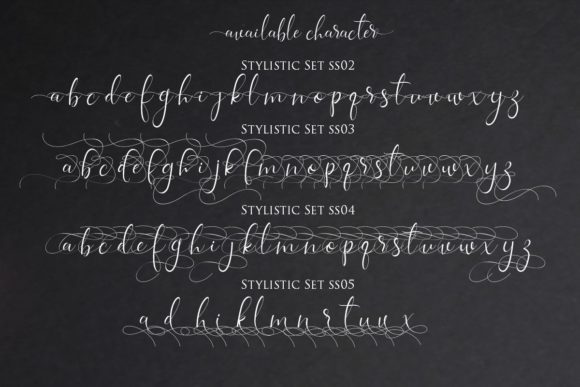 available character
Stylistic Set ss02
a b c d e f g h i j k l m n o p q r s t u v w x y z
Stylistic Set ss03
a b c d e f g h i j k l m n o p q r s t u v w x y z
Stylistic Set ss04
a b c d e f g h i j k l m n o p q r s t u v w x y z
Stylistic Set ss05
a d h i k l m n r t u x